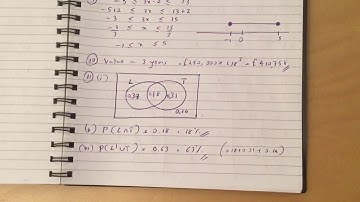 -5 ≤ 3x-2 ≤ 13
-5+2 ≤ 3x ≤ 13+2
-3 ≤ 3x ≤ 15
-3/3 ≤ x ≤ 15/3
-1 ≤ x ≤ 5
-1 0 5
Value in 3 years =
(i)
L T
0.37 0.18 0.31
0.14
(ii) P(L∩T) = 0.18 = 18%
(iii) P(L'∪T) = 0.63 = 63% (0.18+0.31+0.14)